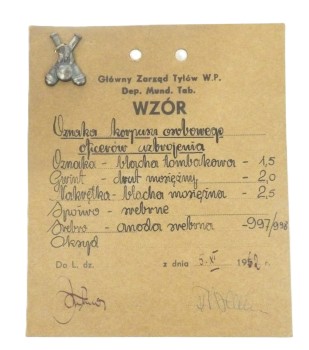 Główny Zarząd Tyłów W.P.
Dep. Mund. Tab.
WZÓR
Oznaka korpusu osobowego
oficerów uzbrojenia
Oznaka - blacha tombakowa - 1,5
Gwint - drut mosiężny - 2,0
Nakrętka - blacha mosiężna - 2,5
Spoiwo - srebrne
Srebro - anoda srebrna - 997/998
Oksyd
Do L. dz. z dnia 5.XI 1952 r.